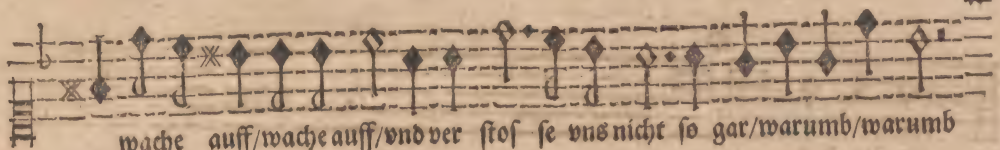 wache auff/wache auff/vnd ver stos se vns nicht so gar/warumb/warumb